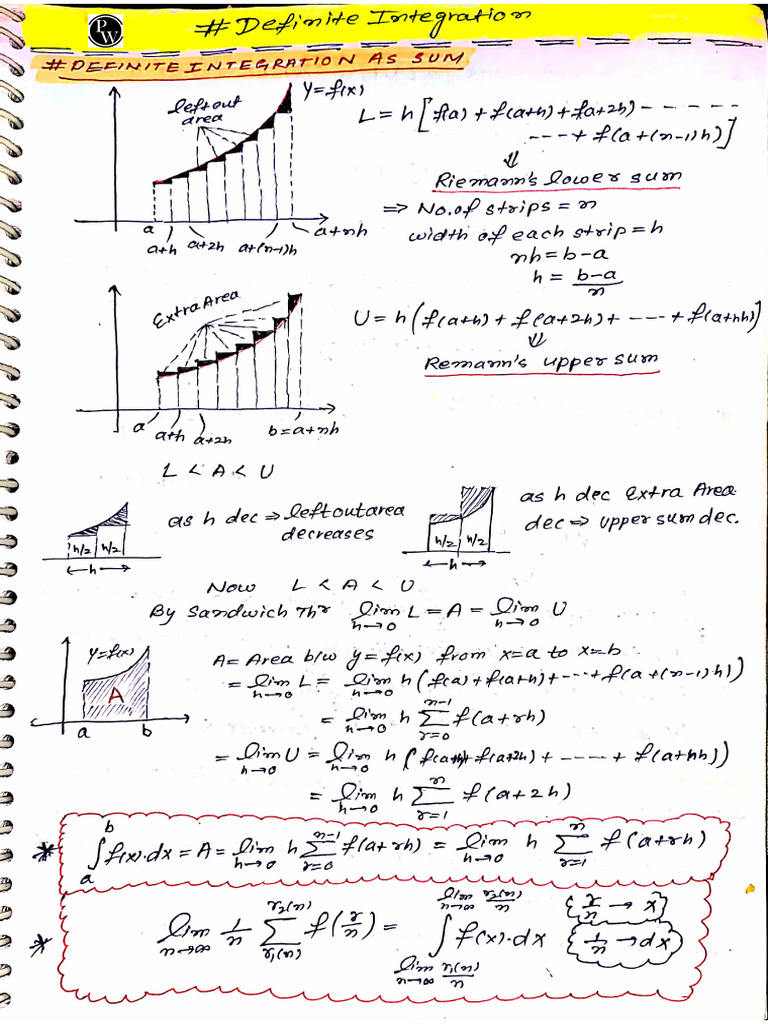 PW
# Definite Integration
# DEFINITE INTEGRATION AS SUM
y=f(x)
leftout area
L = h[f(a) + f(a+h) + f(a+2h) ------
---+ f(a+(n-1)h)]
⇓
Riemann's lower sum
⇒ No. of strips = n
width of each strip = h
nh = b-a
h = (b-a)/n
a
a+h
a+2h
a+(n-1)h
a+nh
Extra Area
U = h(f(a+h) + f(a+2h) + ---- + f(a+nh)]
⇓
Remann's upper sum
a
a+h
a+2h
b=a+nh
L < A < U
as h dec ⇒ left out area decreases
h/2 h/2
h
as h dec Extra Area
dec ⇒ upper sum dec.
h/2 h/2
h
Now L < A < U
By Sandwich Thr lim_{h→0} L = A = lim_{h→0} U
y=f(x)
A
a b
A = Area b/w y=f(x) from x=a to x=b
= lim_{h→0} L = lim_{h→0} h(f(a) + f(a+h) + ---- + f(a+(n-1)h))
= lim_{h→0} h ∑_{r=0}^{n-1} f(a+rh)
= lim_{h→0} U = lim_{h→0} h(f(a+h) + f(a+2h) + ----- + f(a+nh))
= lim_{h→0} h ∑_{r=1}^{n} f(a+2h)
* ∫_a^b f(x)·dx = A = lim_{h→0} h ∑_{r=0}^{n-1} f(a+rh) = lim_{h→0} h ∑_{r=1}^{n} f(a+rh)
* lim_{n→∞} 1/n ∑_{r₁(n)}^{r₂(n)} f(r/n) = ∫_{lim_{n→∞} r₁(n)/n}^{lim_{n→∞} r₂(n)/n} f(x)·dx
{r/n → x}
{1/n → dx}